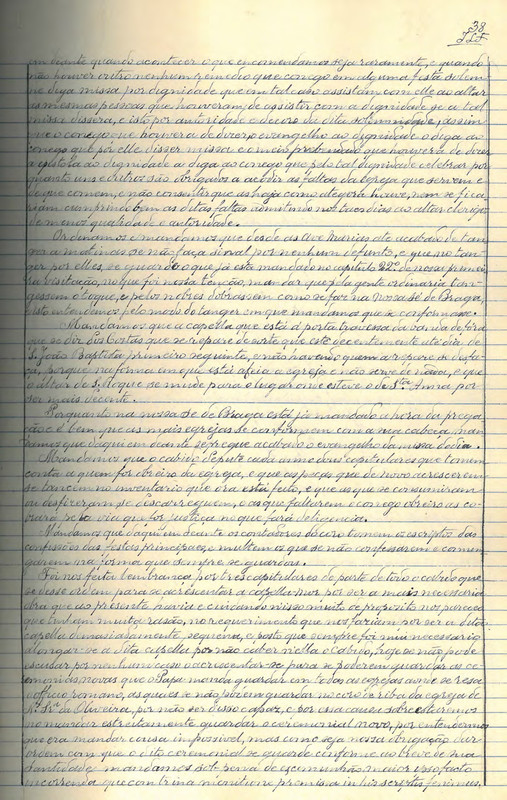 38
em deante quando acontecer o que encomendamos seja raramente, e quando
não houver outro nenhum remedio que conego em alguma festa solem-
ne diga missa por dignidade que em tal caso assistam com elle ao altar
as mesmas pessoas que houveram de assistir com a dignidade se a tal
missa dissera, e isto por autoridade e decoro da dita solemnidade, assim
que o conego que houvera de dizer o evangelho ao dignidade o diga ao
conego que por elle disser missa e o meio prebendado que houvera de dizer
a epistola ao dignidade a diga ao conego que pelo tal dignidade celebrar por
quanto uns e outros são obrigados a acodir as faltas da egreja que servem e
de que comem, e não consentir que as haja como ategora houve, nem se fica-
riam cumprindo bem as ditas faltas admitindo nos taes dias ao altar clerigos
de menos qualidade e autoridade.
Ordenamos e mandamos que desde as Ave Marias até acabado de tan-
ger a matinas se não faça sinal por nenhum defunto, e que no tan-
ger por elles se guarde o que já está mandado no capitulo 22º da nossa primei-
ra visitação, no que foi nossa tenção, mandar que pela gente ordinaria tan-
gessem o toque, e pelos nobres dobrassem como se faz na nossa Sé de Braga,
isto entendemos pelo modo de tanger em que mandamos que se conformasse.
Mandamos que a capella que está á porta travessa da banda de fóra
que se diz dos Costas que se repare de sorte que esté decentemente até dia de
S. João Baptista primeiro seguinte, e não havendo quem a repare se desfa-
ça, porque na forma em que está afeia a egreja e não serve de nada, e que
o altar de S. Roque se mude para o lugar onde esteve o de Sta Anna por
ser mais decente.
Porquanto na nossa Sé de Braga está já mandado a hora da prega-
ção e é bem que as mais egrejas se conformem com a sua cabeça, man-
damos que daqui em deante se pregue acabado o evangelho da missa do dia.
Mandamos que o cabido depute cada anno dous capitulares que tomem
conta a quem for obreiro da egreja, e que as peças que de novo acrescerem
se lancem no inventario que ora está feito, e que as que se consumiram
ou desfizeram se descarreguem, e as que faltarem o conego obreiro as co-
brará pela via que for justiça no que fará deligencia.
Mandamos que daqui em deante os contadores do coro tomem os escriptos das
confissões das festas principaes, e multem os que se não confessarem e comun-
garem na forma que sempre se guardou.
Foi nos feita lembrança por tres capitulares de parte de todo o cabido que
se desse ordem para se acrescentar a capella mor por ser a mais necessaria
obra que ao presente havia e cuidando nisso muito de proposito nos pareceu
que tinham muita rasão, no requerimento que nos faziam por ser a dita
capella demasiadamente pequena, e posto que sempre foi mui necessario
alongar-se a dita capella por não caber nella o cabido, hoje se não pode
escusar por nenhum caso o acrescentar-se para se poderem guardar as ce-
remonias novas que o Papa manda guardar em todas as egrejas aonde se resa
o officio romano, as quaes se não podem guardar no coro de riba da egreja de
N. Sra da Oliveira, por não ser disso capaz, e por essa causa sobre estivemos
no mandar estreitamente guardar o ceremonial novo, por entendermos
que era mandar cousa impossivel, mas como seja nossa obrigação dar
ordem com que o dito ceremonial se guarde conforme ao breve de sua
santidade, mandamos sob pena de excomunhão maior ipso facto
incorrenda que com trina monitione premissa in his scriptis ferimus.